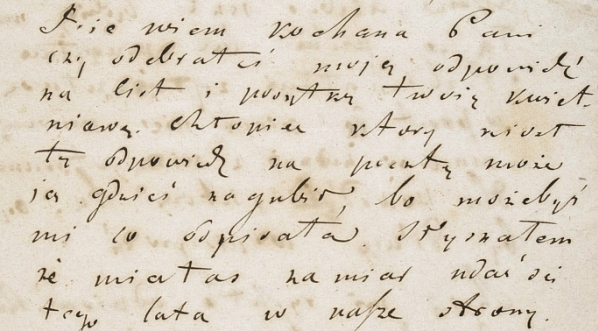 Nie wiem kochana Pani
czy odebrałaś moję odpowiedź
na list i posyłkę twoję kwiet-
niową. Chłopiec który niosł
tę odpowiedź na pocztę może
ją gdzieś zagubił, bo możebyś
mi co odpisała. Słyszałem
że miałaś zamiar udać się
tego lata w nasze strony.